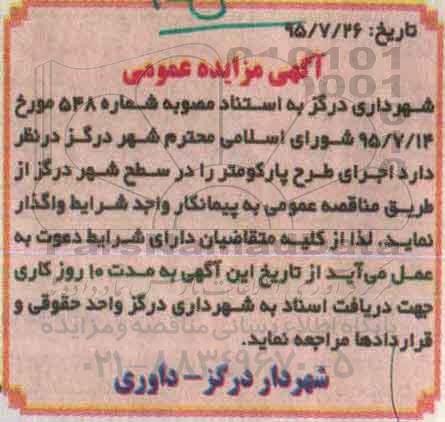 تاریخ: ۹۵/۷/۲۶
آگهی مزایده عمومی
شهرداری درگز به استناد مصوبه شماره ۵۴۸ مورخ
۹۵/۷/۱۴ شورای اسلامی محترم شهر درگز درنظر
دارد اجرای طرح پارکومتر را در سطح شهر درگز از
طریق مناقصه عمومی به پیمانکار واجد شرایط واگذار
نماید. لذا از کلیه متقاضیان دارای شرایط دعوت به
عمل می‌آید از تاریخ این آگهی به مدت ۱۰ روز کاری
جهت دریافت اسناد به شهرداری درگز واحد حقوقی و
پایگاه اطلاع رسانی مناقصه و مزایده
قراردادها مراجعه نماید.
۰۲۱-۸۸۳۴۹۶۷۰-۵
شهردار درگز- داوری